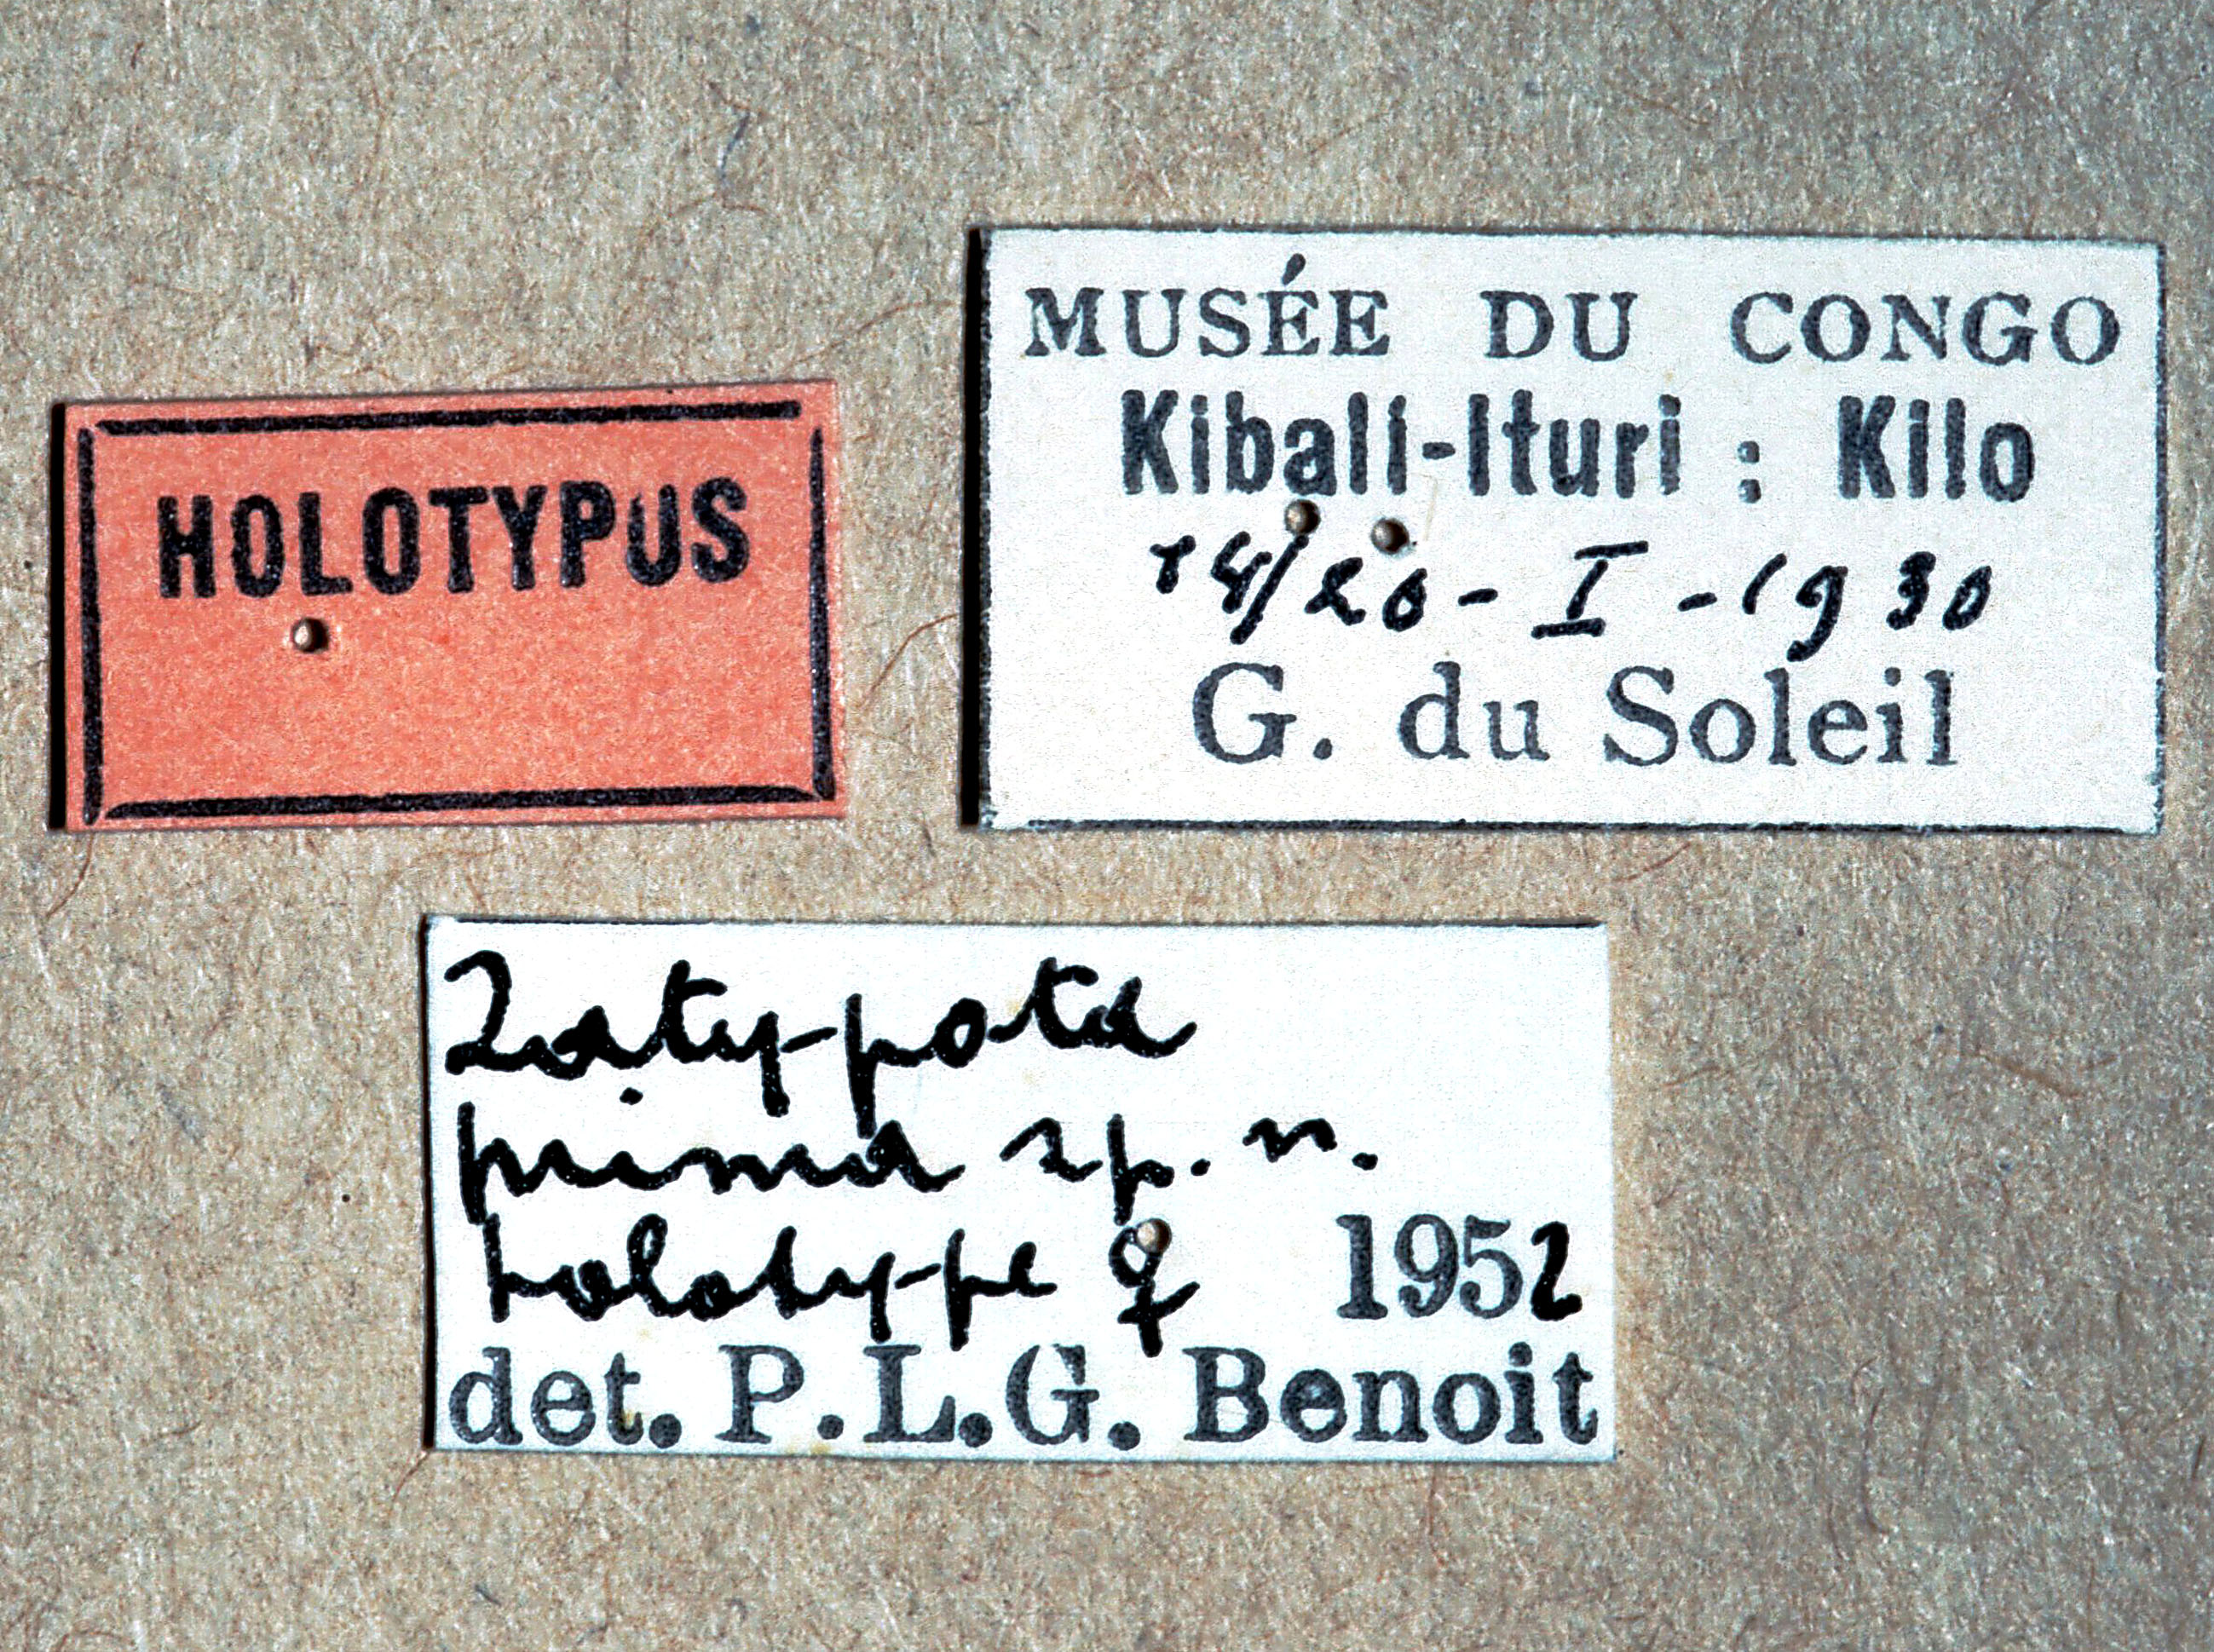 HOLOTYPUS
MUSÉE DU CONGO
Kibali-Ituri : Kilo
14/20-I-1930
G. du Soleil
Zatypota
prima sp. n.
holotype ♀ 1952
det. P.L.G. Benoit